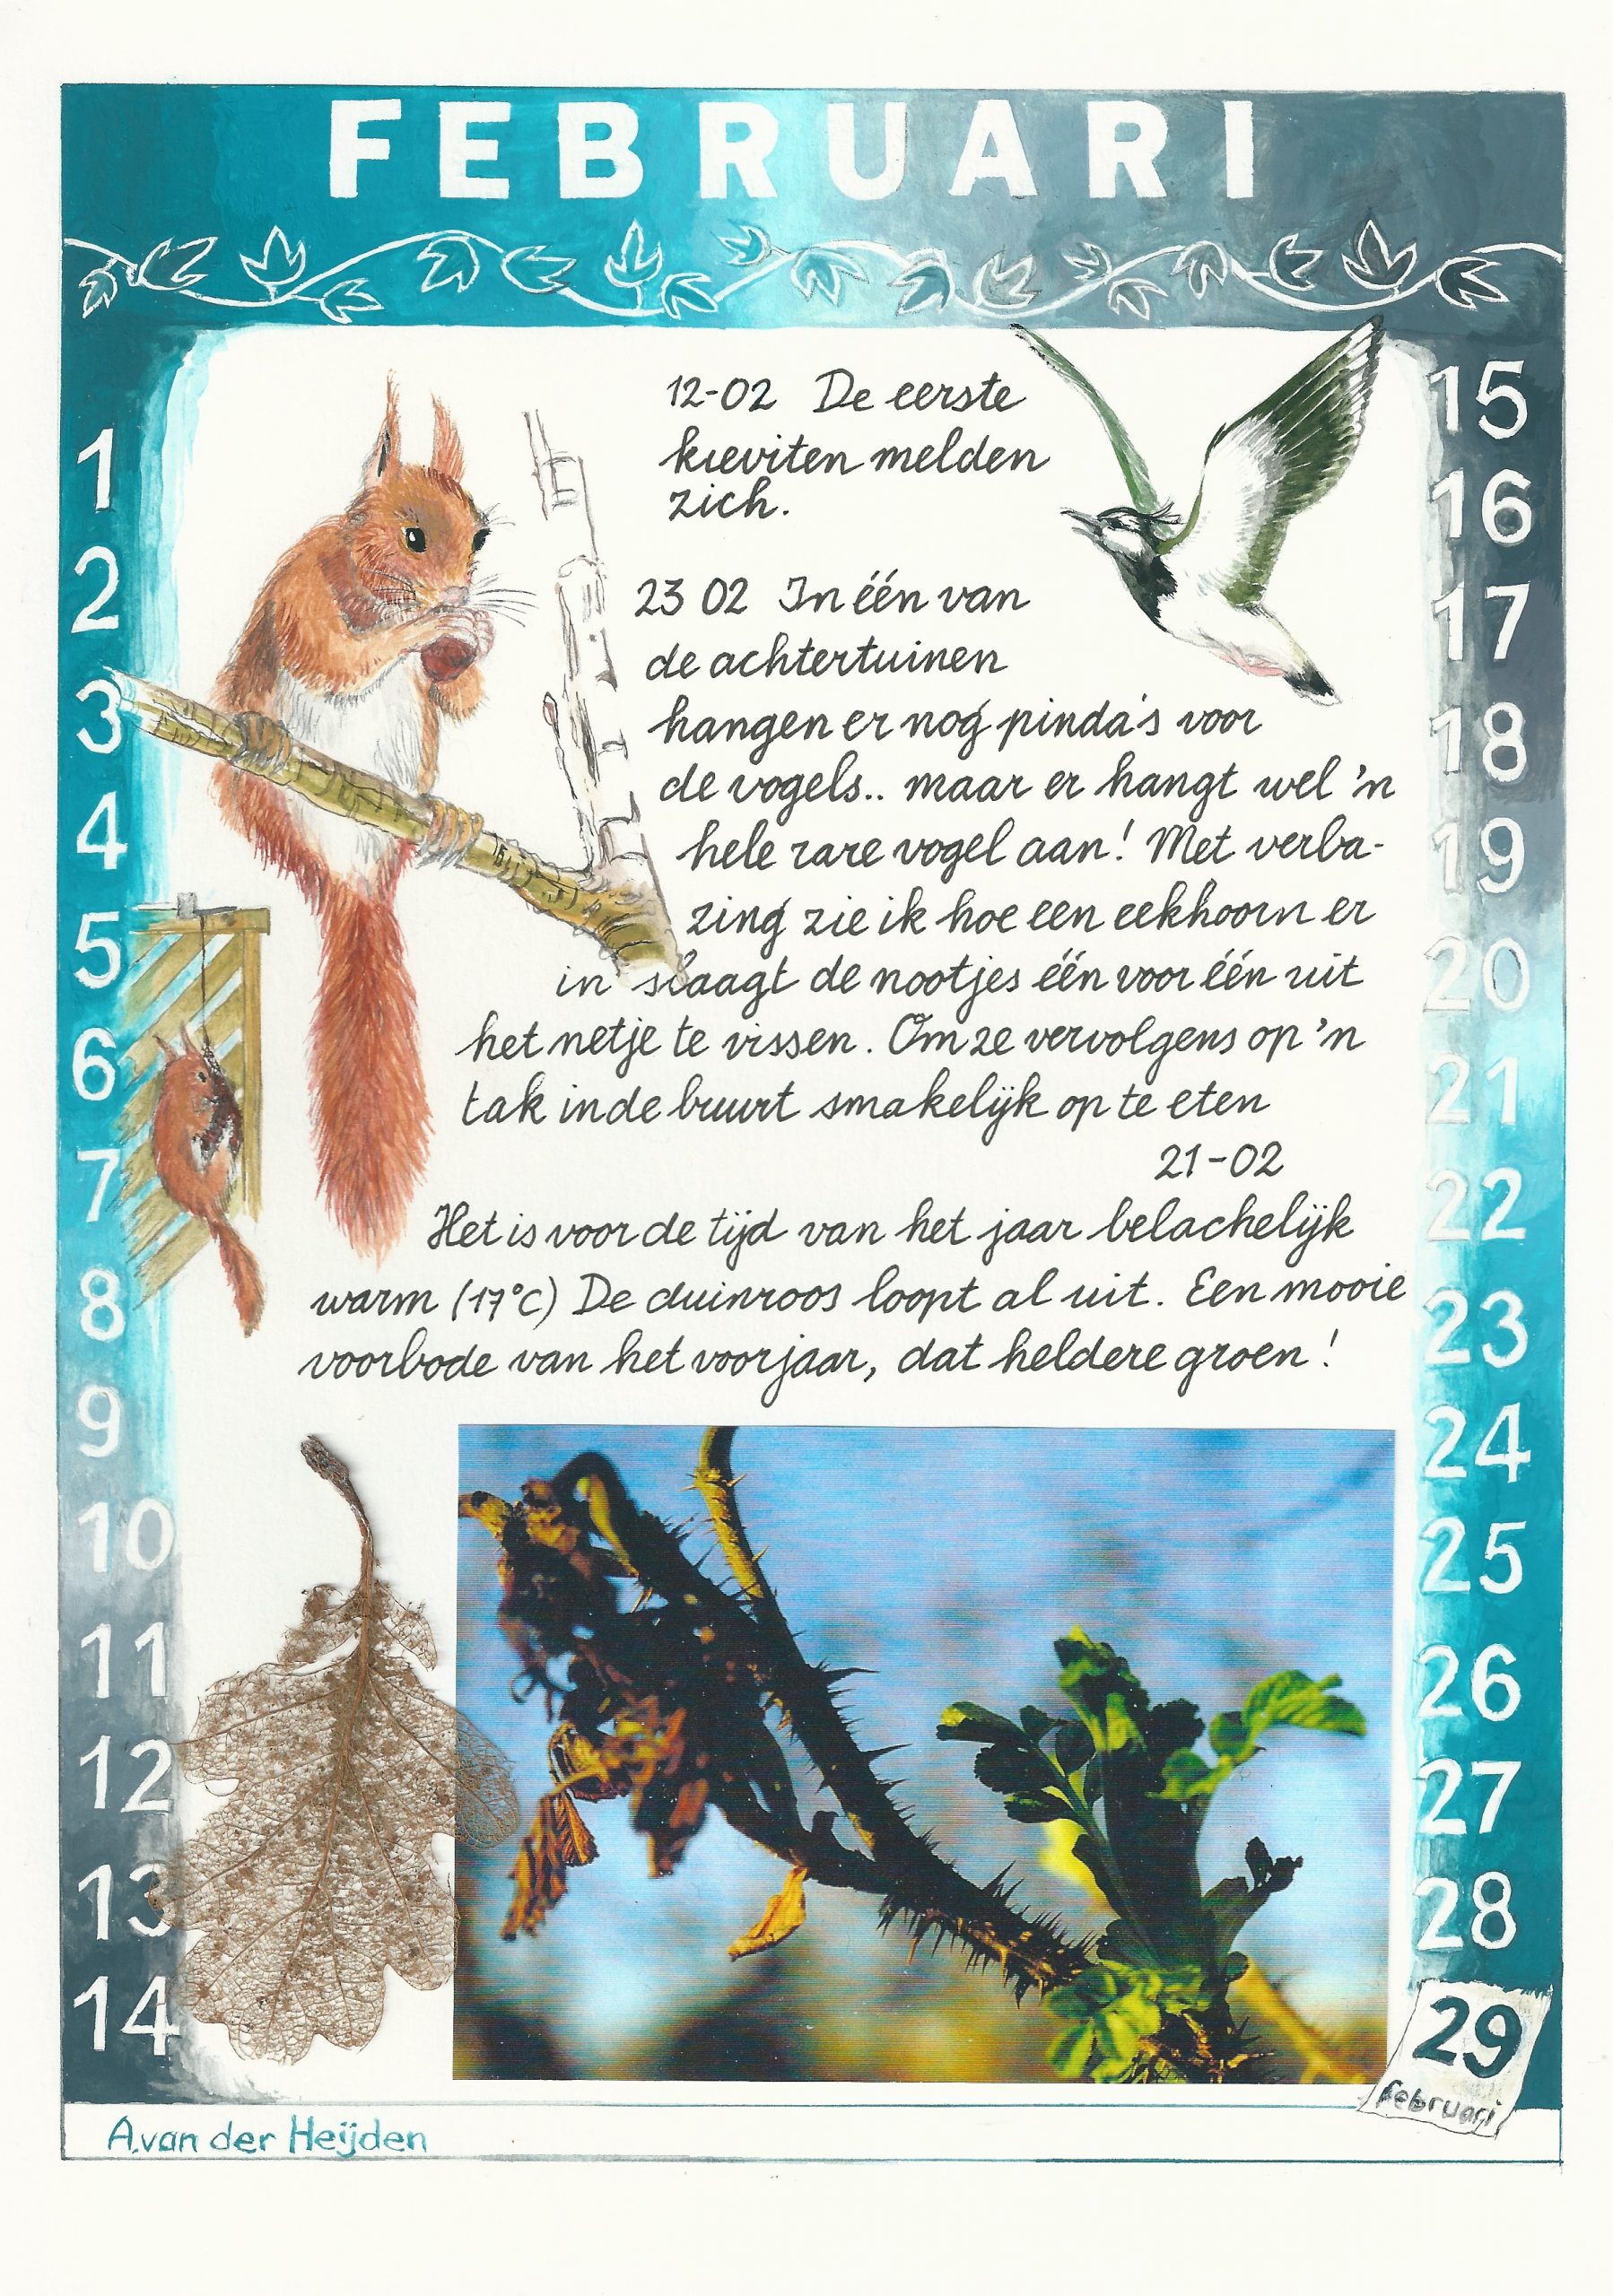 FEBRUARI
1
2
3
4
5
6
7
8
9
10
11
12
13
14
12-02 De eerste
kieviten melden
zich.
23 02 In één van
de achtertuinen
hangen er nog pinda's voor
de vogels.. maar er hangt wel 'n
hele rare vogel aan! Met verba-
zing zie ik hoe een eekhoorn er
in slaagt de nootjes één voor één uit
het netje te vissen. Om ze vervolgens op 'n
tak in de buurt smakelijk op te eten
21-02
Het is voor de tijd van het jaar belachelijk
warm (17°C) De duinroos loopt al uit. Een mooie
voorbode van het voorjaar, dat heldere groen!
15
16
17
18
19
20
21
22
23
24
25
26
27
28
29
februari
A.van der Heijden